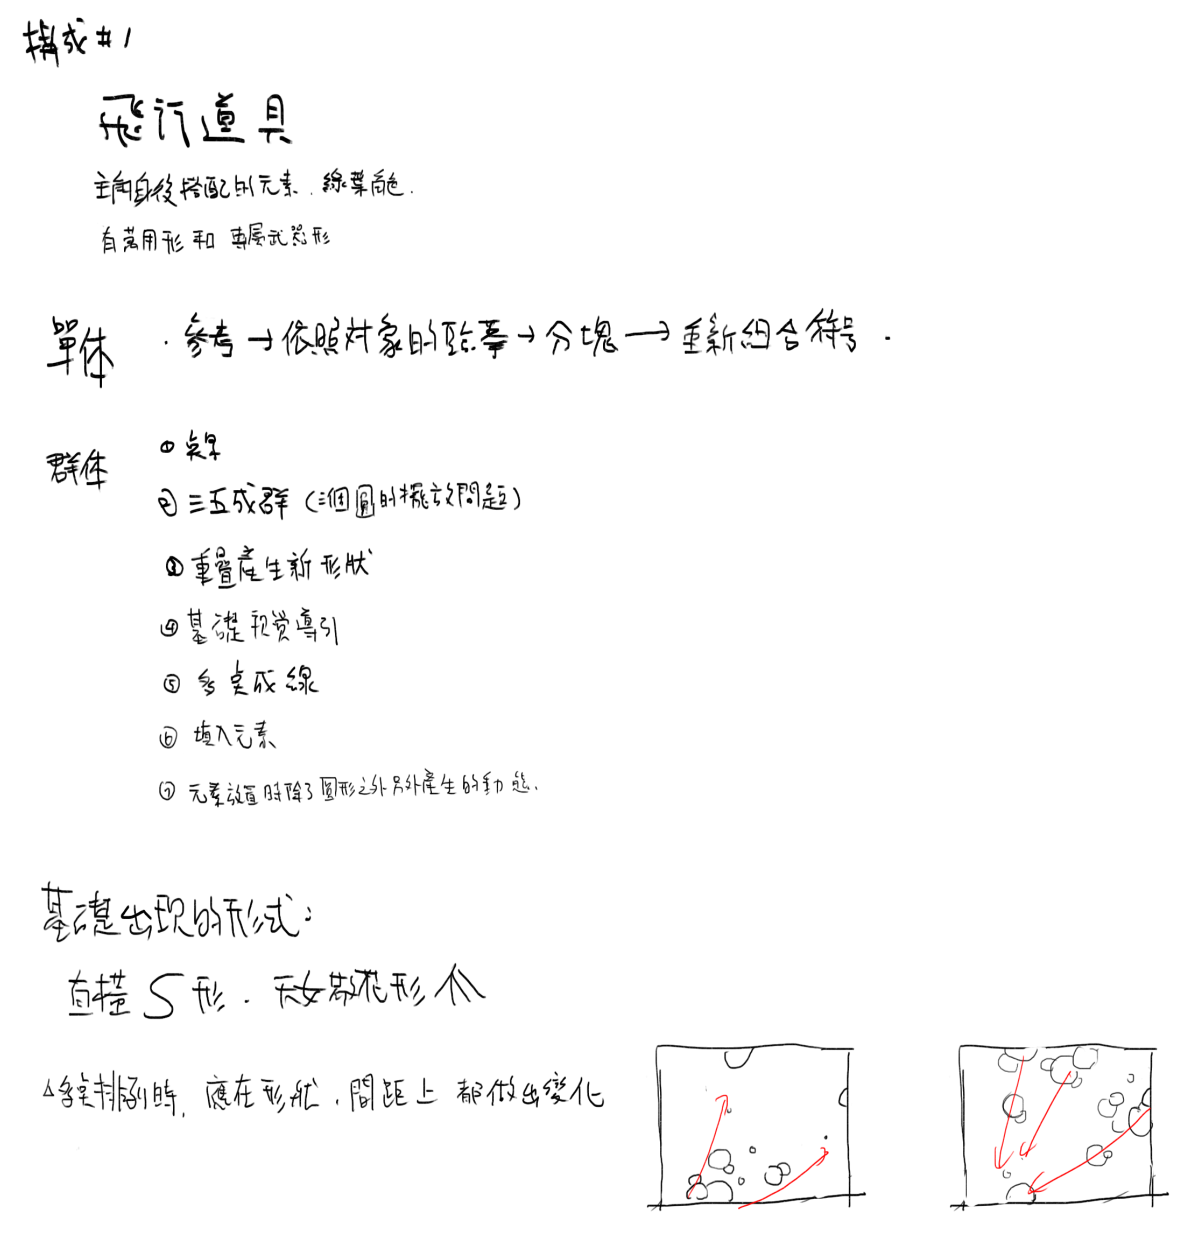 構成#1
飛行道具
主角自後搭配的元素. 線葉角色.
有萬用形和 專屬武器形
單体 · 參考→依照対象的臨摹→分塊→重新組合符号.
群体 ① 点
② 三五成群 (三個圓的擺放問題)
③ 重疊產生新形狀
④ 基礎視覚導引
⑤ 多点成線
⑥ 填入元素
⑦ 元素放置時除了圓形之外另外產生的動態.
基礎出現的形式:
直橫 S形. 天女散花形
△多点排列時, 應在形狀.間距上 都做出變化